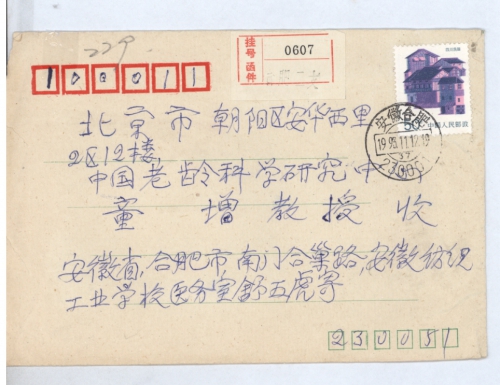 229
挂号函件
0607
100011
北京市朝阳区安华西里
2区12楼
中国老龄科学研究中
童增教授 收
安徽合肥
50
中国人民邮政
230051
安徽省,合肥市南门合巢路,安徽纺织
工业学校医务室舒五虎寄
230051